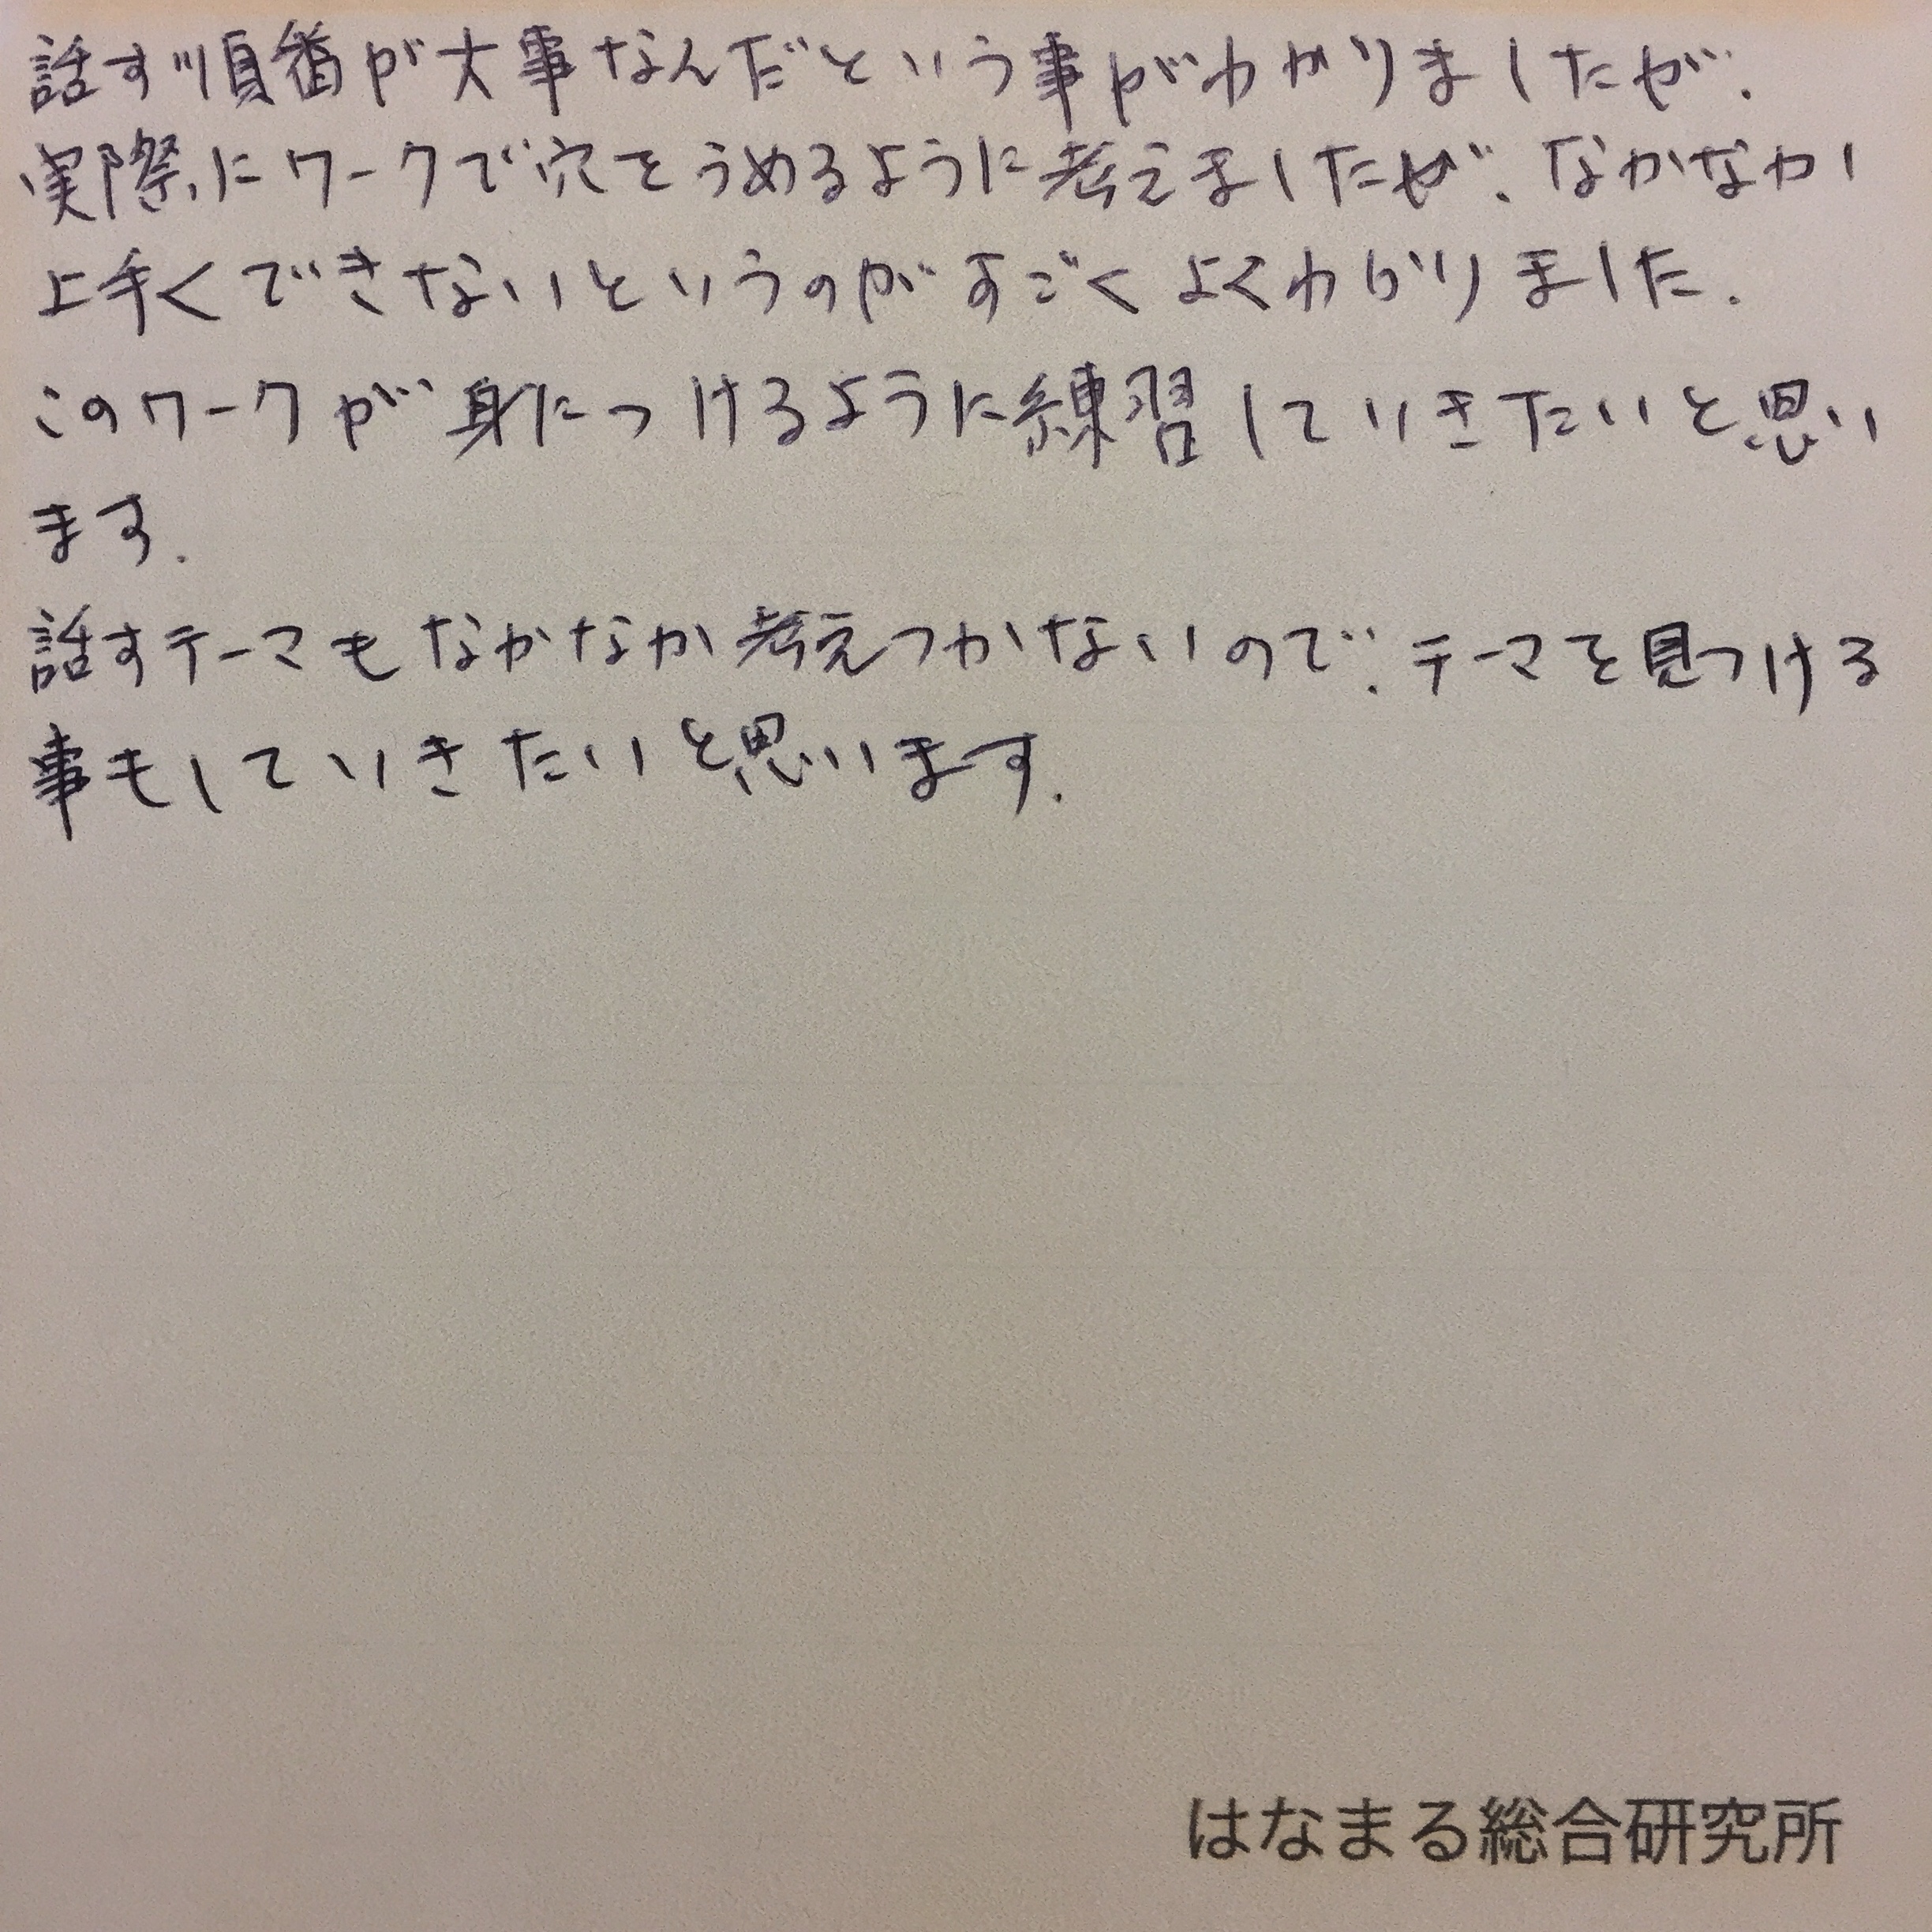 話す順番が大事なんだという事がわかりましたが、
実際にワークで穴をうめるように考えましたが、なかなか
上手くできないというのがすごくよくわかりました。
このワークが身につけるように練習していきたいと思い
ます。
話すテーマもなかなか考えつかないので、テーマを見つける
事もしていきたいと思います。
はなまる総合研究所